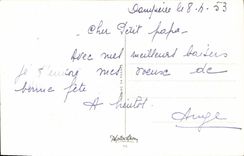 le 8-4-53
Cher Petit papa.
Avec mes meilleurs baisers
je t'envoie mes voeux de
bonne fête
A bientôt.
Ange